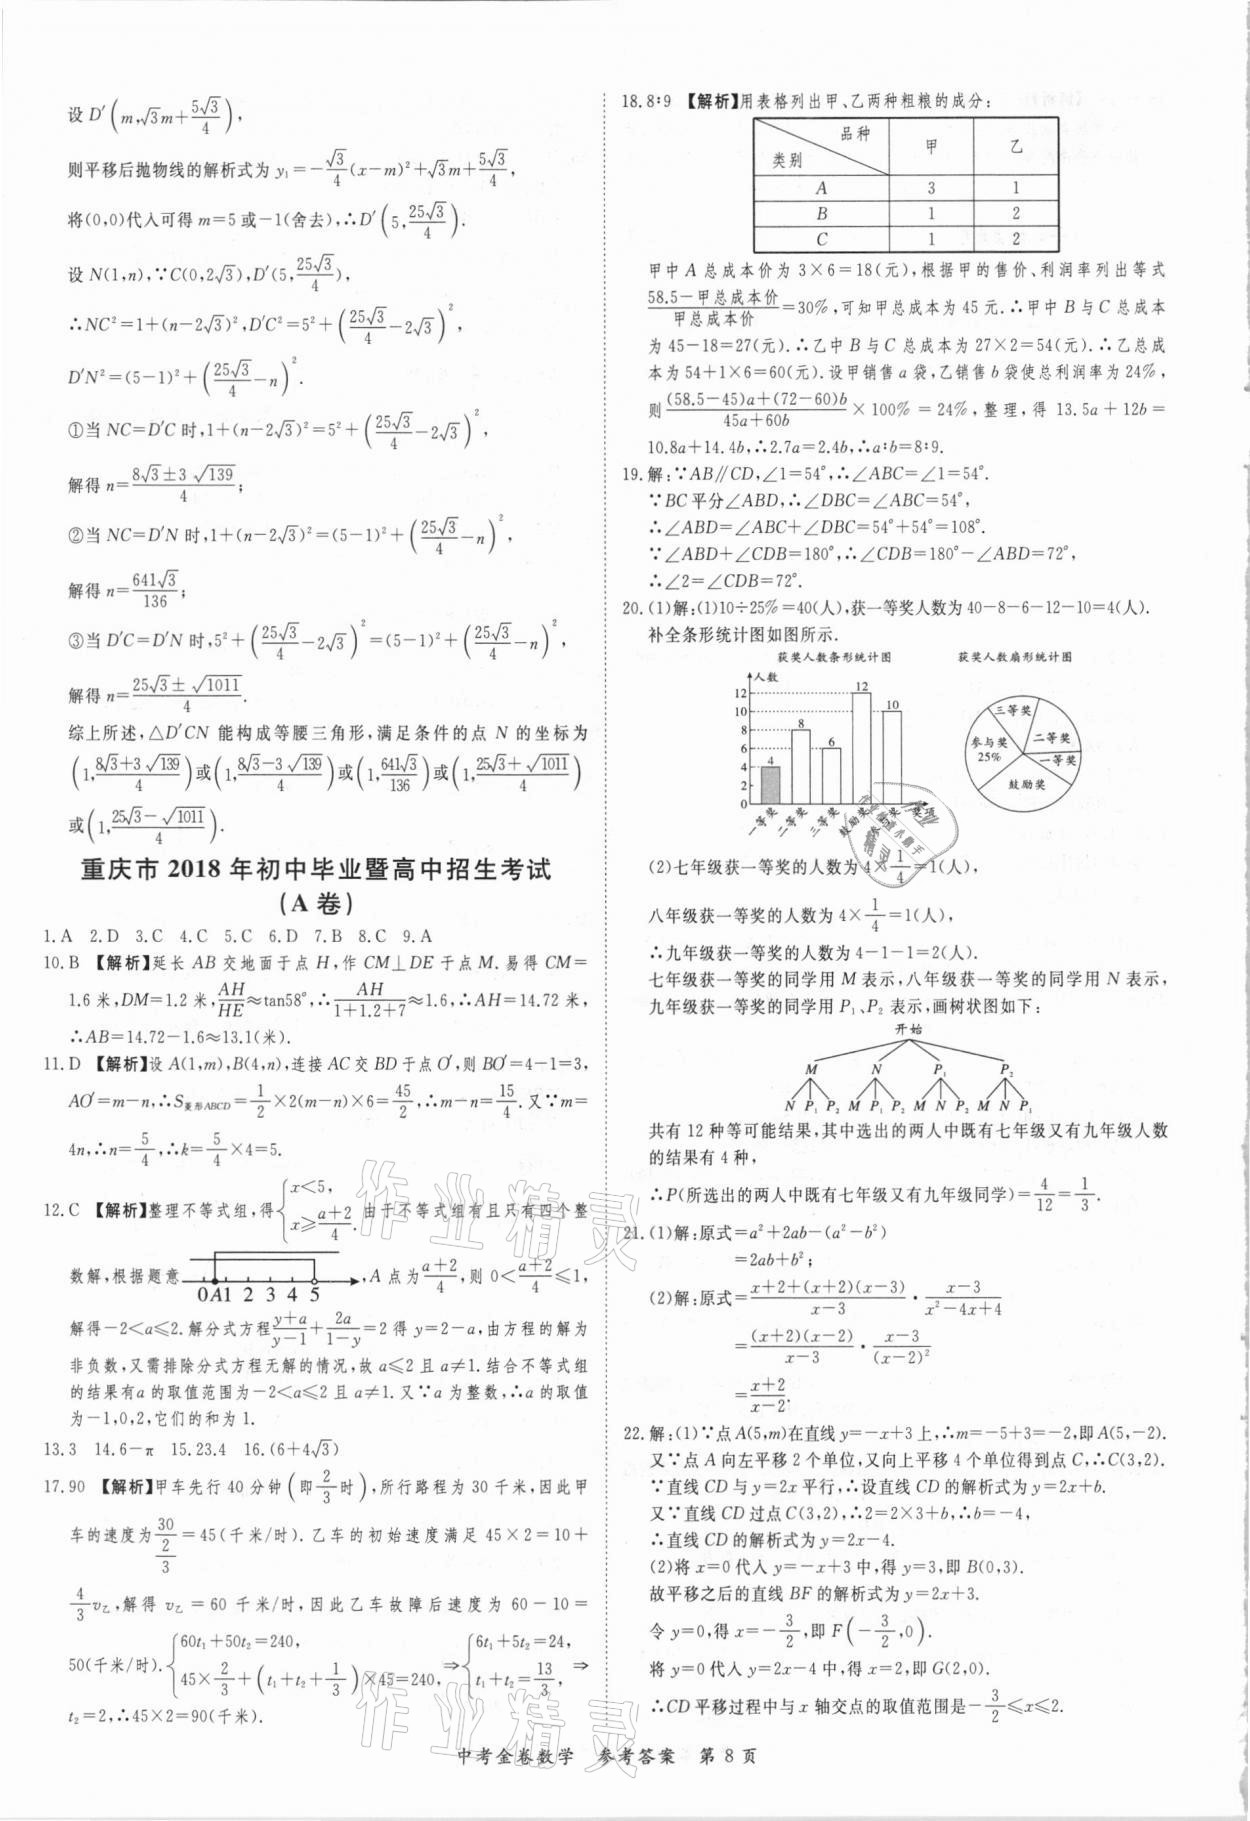 设 D′(m,√3m+5√3/4),
则平移后抛物线的解析式为 y₁=-√3/4(x-m)²+√3m+5√3/4,
将(0,0)代入可得 m=5 或-1(舍去),∴D′(5,25√3/4).
设 N(1,n),∵C(0,2√3),D′(5,25√3/4),
∴NC²=1+(n-2√3)²,D′C²=5²+(25√3/4-2√3)²,
D′N²=(5-1)²+(25√3/4-n)².
①当 NC=D′C 时,1+(n-2√3)²=5²+(25√3/4-2√3)²,
解得 n=(8√3±3√139)/4;
②当 NC=D′N 时,1+(n-2√3)²=(5-1)²+(25√3/4-n)²,
解得 n=641√3/136;
③当 D′C=D′N 时,5²+(25√3/4-2√3)²=(5-1)²+(25√3/4-n)²,
解得 n=(25√3±√1011)/4.
综上所述,△D′CN 能构成等腰三角形,满足条件的点 N 的坐标为
(1,(8√3+3√139)/4)或(1,(8√3-3√139)/4)或(1,641√3/136)或(1,(25√3+√1011)/4)
或(1,(25√3-√1011)/4).
重庆市 2018 年初中毕业暨高中招生考试
(A 卷)
1.A 2.D 3.C 4.C 5.C 6.D 7.B 8.C 9.A
10.B 【解析】延长 AB 交地面于点 H,作 CM⊥DE 于点 M.易得 CM=
1.6 米,DM=1.2 米,AH/HE≈tan58°,∴AH/(1+1.2+7)≈1.6,∴AH=14.72 米,
∴AB=14.72-1.6≈13.1(米).
11.D 【解析】设 A(1,m),B(4,n),连接 AC 交 BD 于点 O′,则 BO′=4-1=3,
AO′=m-n,∴S菱形ABCD=1/2×2(m-n)×6=45/2,∴m-n=15/4.又∵m=
4n,∴n=5/4,∴k=5/4×4=5.
12.C 【解析】整理不等式组,得{x<5, x≥(a+2)/4. 由于不等式组有且只有四个整
数解,根据题意 0A1 2 3 4 5 ,A 点为(a+2)/4,则 0<(a+2)/4≤1,
解得-2<a≤2.解分式方程(y+a)/(y-1)+2a/(1-y)=2 得 y=2-a,由方程的解为
非负数,又需排除分式方程无解的情况,故 a≤2 且 a≠1.结合不等式组
的结果有a 的取值范围为-2<a≤2 且 a≠1.又∵a 为整数,∴a 的取值
为-1,0,2,它们的和为 1.
13.3 14.6-π 15.23.4 16.(6+4√3)
17.90 【解析】甲车先行 40 分钟(即2/3时),所行路程为 30 千米,因此甲
车的速度为30/(2/3)=45(千米/时).乙车的初始速度满足 45×2=10+
4/3v乙,解得 v乙=60 千米/时,因此乙车故障后速度为 60-10=
50(千米/时).{60t₁+50t₂=240, 45×2/3+(t₁+t₂+1/3)×45=240,⇒{6t₁+5t₂=24, t₁+t₂=13/3,⇒
t₂=2,∴45×2=90(千米).
18.8∶9 【解析】用表格列出甲、乙两种粗粮的成分:
品种 类别 甲 乙
A 3 1
B 1 2
C 1 2
甲中 A 总成本价为 3×6=18(元),根据甲的售价、利润率列出等式
(58.5-甲总成本价)/甲总成本价=30%,可知甲总成本为 45 元.∴甲中 B 与 C 总成本
为 45-18=27(元).∴乙中 B 与 C 总成本为 27×2=54(元).∴乙总成
本为 54+1×6=60(元).设甲销售 a 袋,乙销售 b 袋使总利润率为 24%,
则((58.5-45)a+(72-60)b)/(45a+60b)×100%=24%,整理,得 13.5a+12b=
10.8a+14.4b,∴2.7a=2.4b,∴a∶b=8∶9.
19.解:∵AB∥CD,∠1=54°,∴∠ABC=∠1=54°.
∵BC 平分∠ABD,∴∠DBC=∠ABC=54°,
∴∠ABD=∠ABC+∠DBC=54°+54°=108°.
∵∠ABD+∠CDB=180°,∴∠CDB=180°-∠ABD=72°,
∴∠2=∠CDB=72°.
20.(1)解:(1)10÷25%=40(人),获一等奖人数为 40-8-6-12-10=4(人).
补全条形统计图如图所示.
获奖人数条形统计图 获奖人数扇形统计图
人数
12 10 8 6 4 2 0
4 8 6 12 10
一等奖 二等奖 三等奖 鼓励奖 参与奖 奖项
三等奖 二等奖 一等奖 鼓励奖 参与奖 25%
(2)七年级获一等奖的人数为 4×1/4=1(人),
八年级获一等奖的人数为 4×1/4=1(人),
∴九年级获一等奖的人数为 4-1-1=2(人).
七年级获一等奖的同学用 M 表示,八年级获一等奖的同学用 N 表示,
九年级获一等奖的同学用 P₁、P₂ 表示,画树状图如下:
开始
M N P₁ P₂
N P₁ P₂ M P₁ P₂ M N P₂ M N P₁
共有 12 种等可能结果,其中选出的两人中既有七年级又有九年级人数
的结果有 4 种,
∴P(所选出的两人中既有七年级又有九年级同学)=4/12=1/3.
21.(1)解:原式=a²+2ab-(a²-b²)
=2ab+b²;
(2)解:原式=(x+2+(x+2)(x-3))/(x-3)·(x-3)/(x²-4x+4)
=(x+2)(x-2)/(x-3)·(x-3)/(x-2)²
=(x+2)/(x-2).
22.解:(1)∵点 A(5,m)在直线 y=-x+3 上,∴m=-5+3=-2,即 A(5,-2).
又∵点 A 向左平移 2 个单位,又向上平移 4 个单位得到点 C,∴C(3,2).
∵直线 CD 与 y=2x 平行,∴设直线 CD 的解析式为 y=2x+b.
又∵直线 CD 过点 C(3,2),∴2=2×3+b,∴b=-4,
∴直线 CD 的解析式为 y=2x-4.
(2)将 x=0 代入 y=-x+3 中,得 y=3,即 B(0,3).
故平移之后的直线 BF 的解析式为 y=2x+3.
令 y=0,得 x=-3/2,即 F(-3/2,0).
将 y=0 代入 y=2x-4 中,得 x=2,即 G(2,0).
∴CD 平移过程中与 x 轴交点的取值范围是-3/2≤x≤2.
作业精灵
作业精灵
中考金卷数学 参考答案 第 8 页